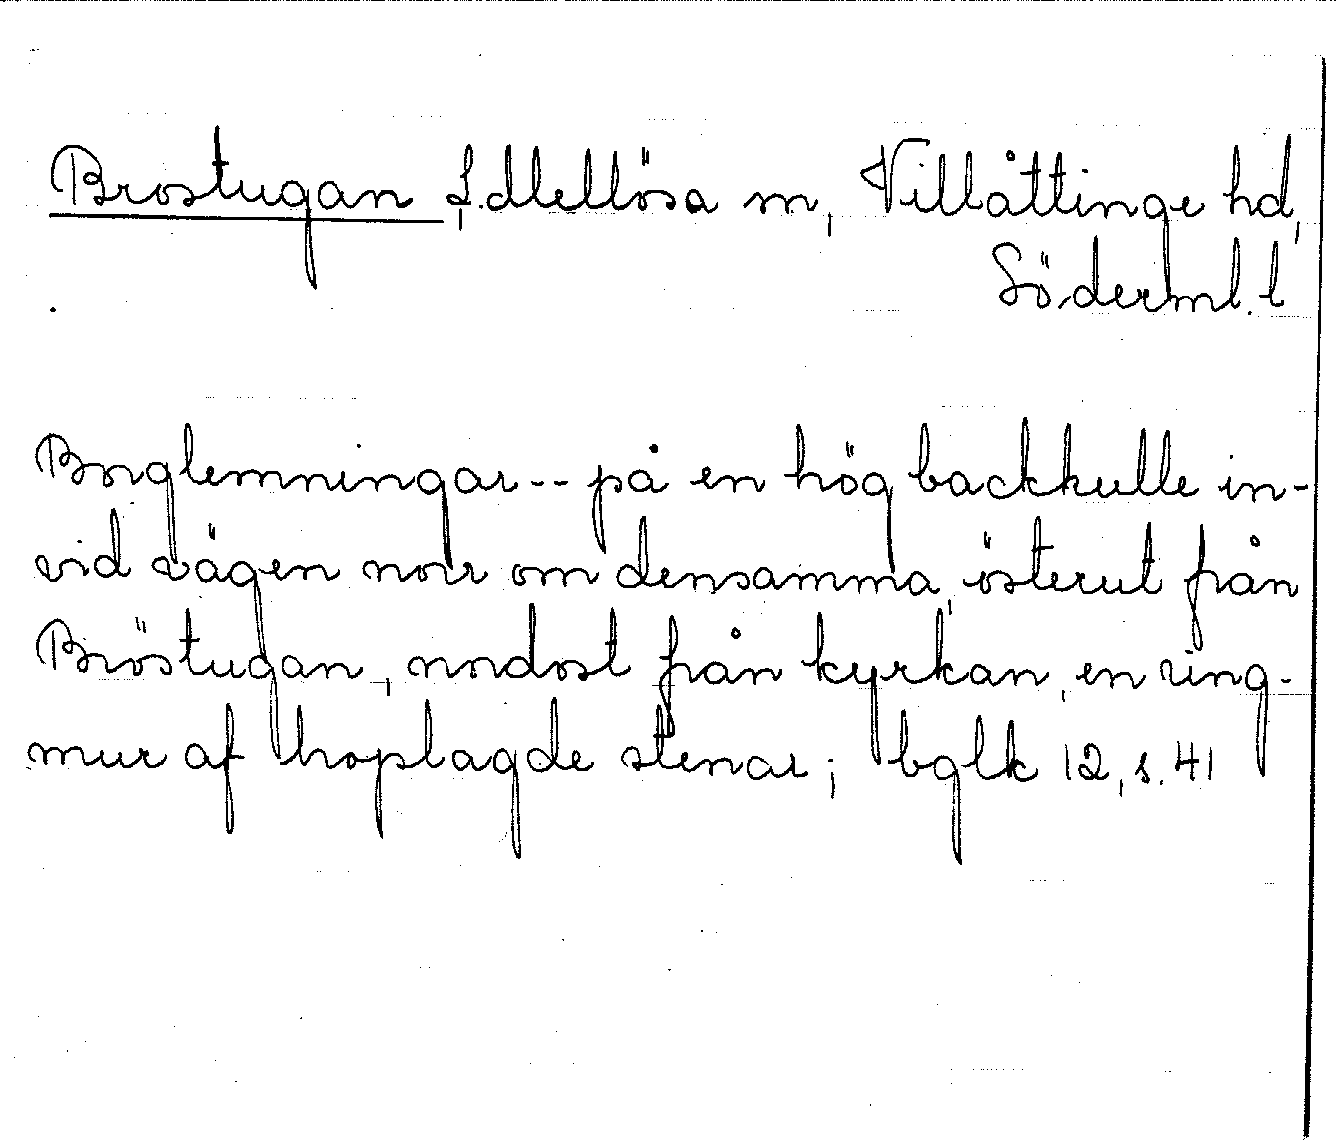 Brostugan f. Mellösa sn, Villåttinge hd,
Söderml. l
Borglemningar -- på en hög backkulle in-
vid vägen norr om densamma, österut från
Bröstugan, nordost från kyrkan, en ring-
mur af hoplagde stenar; bglk 12, s. 41